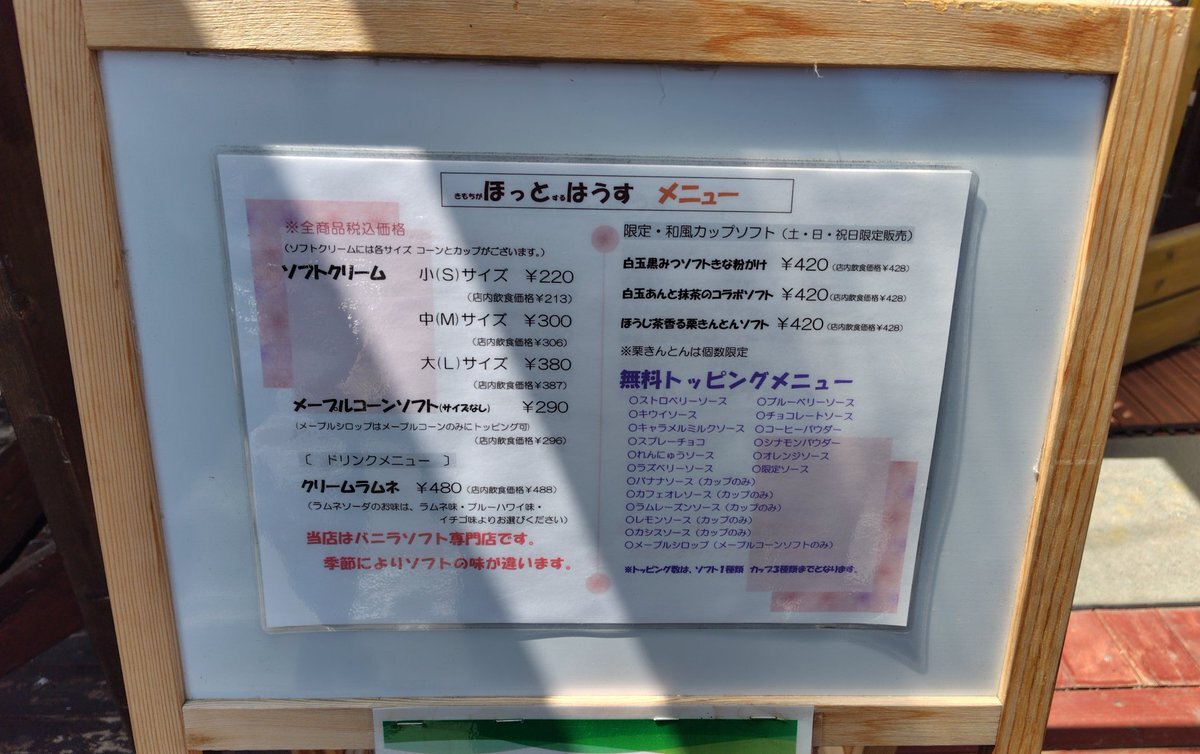 きもちがほっとするはうす メニュー
※全商品税込価格
(ソフトクリームには各サイズ コーンとカップがございます。)
ソフトクリーム 小(S)サイズ ￥220
(店内飲食価格￥213)
中(M)サイズ ￥300
(店内飲食価格￥306)
大(L)サイズ ￥380
(店内飲食価格￥387)
メープルコーンソフト(サイズなし) ￥290
(メープルシロップはメープルコーンのみにトッピング可)
(店内飲食価格￥296)
〔 ドリンクメニュー 〕
クリームラムネ ￥480(店内飲食価格￥488)
(ラムネソーダのお味は、ラムネ味・ブルーハワイ味・
イチゴ味よりお選びください)
当店はバニラソフト専門店です。
季節によりソフトの味が違います。
限定・和風カップソフト（土・日・祝日限定販売）
白玉黒みつソフトきな粉がけ ￥420(店内飲食価格￥428)
白玉あんと抹茶のコラボソフト ￥420(店内飲食価格￥428)
ほうじ茶香る栗きんとんソフト ￥420(店内飲食価格￥428)
※栗きんとんは個数限定
無料トッピングメニュー
〇ストロベリーソース 〇ブルーベリーソース
〇キウイソース 〇チョコレートソース
〇キャラメルミルクソース 〇コーヒーパウダー
〇スプレーチョコ 〇シナモンパウダー
〇れんにゅうソース 〇オレンジソース
〇ラズベリーソース 〇限定ソース
〇バナナソース（カップのみ）
〇カフェオレソース（カップのみ）
〇ラムレーズンソース（カップのみ）
〇レモンソース（カップのみ）
〇カシスソース（カップのみ）
〇メープルシロップ（メープルコーンソフトのみ）
※トッピング数は、ソフト1種類 カップ3種類までとなります。